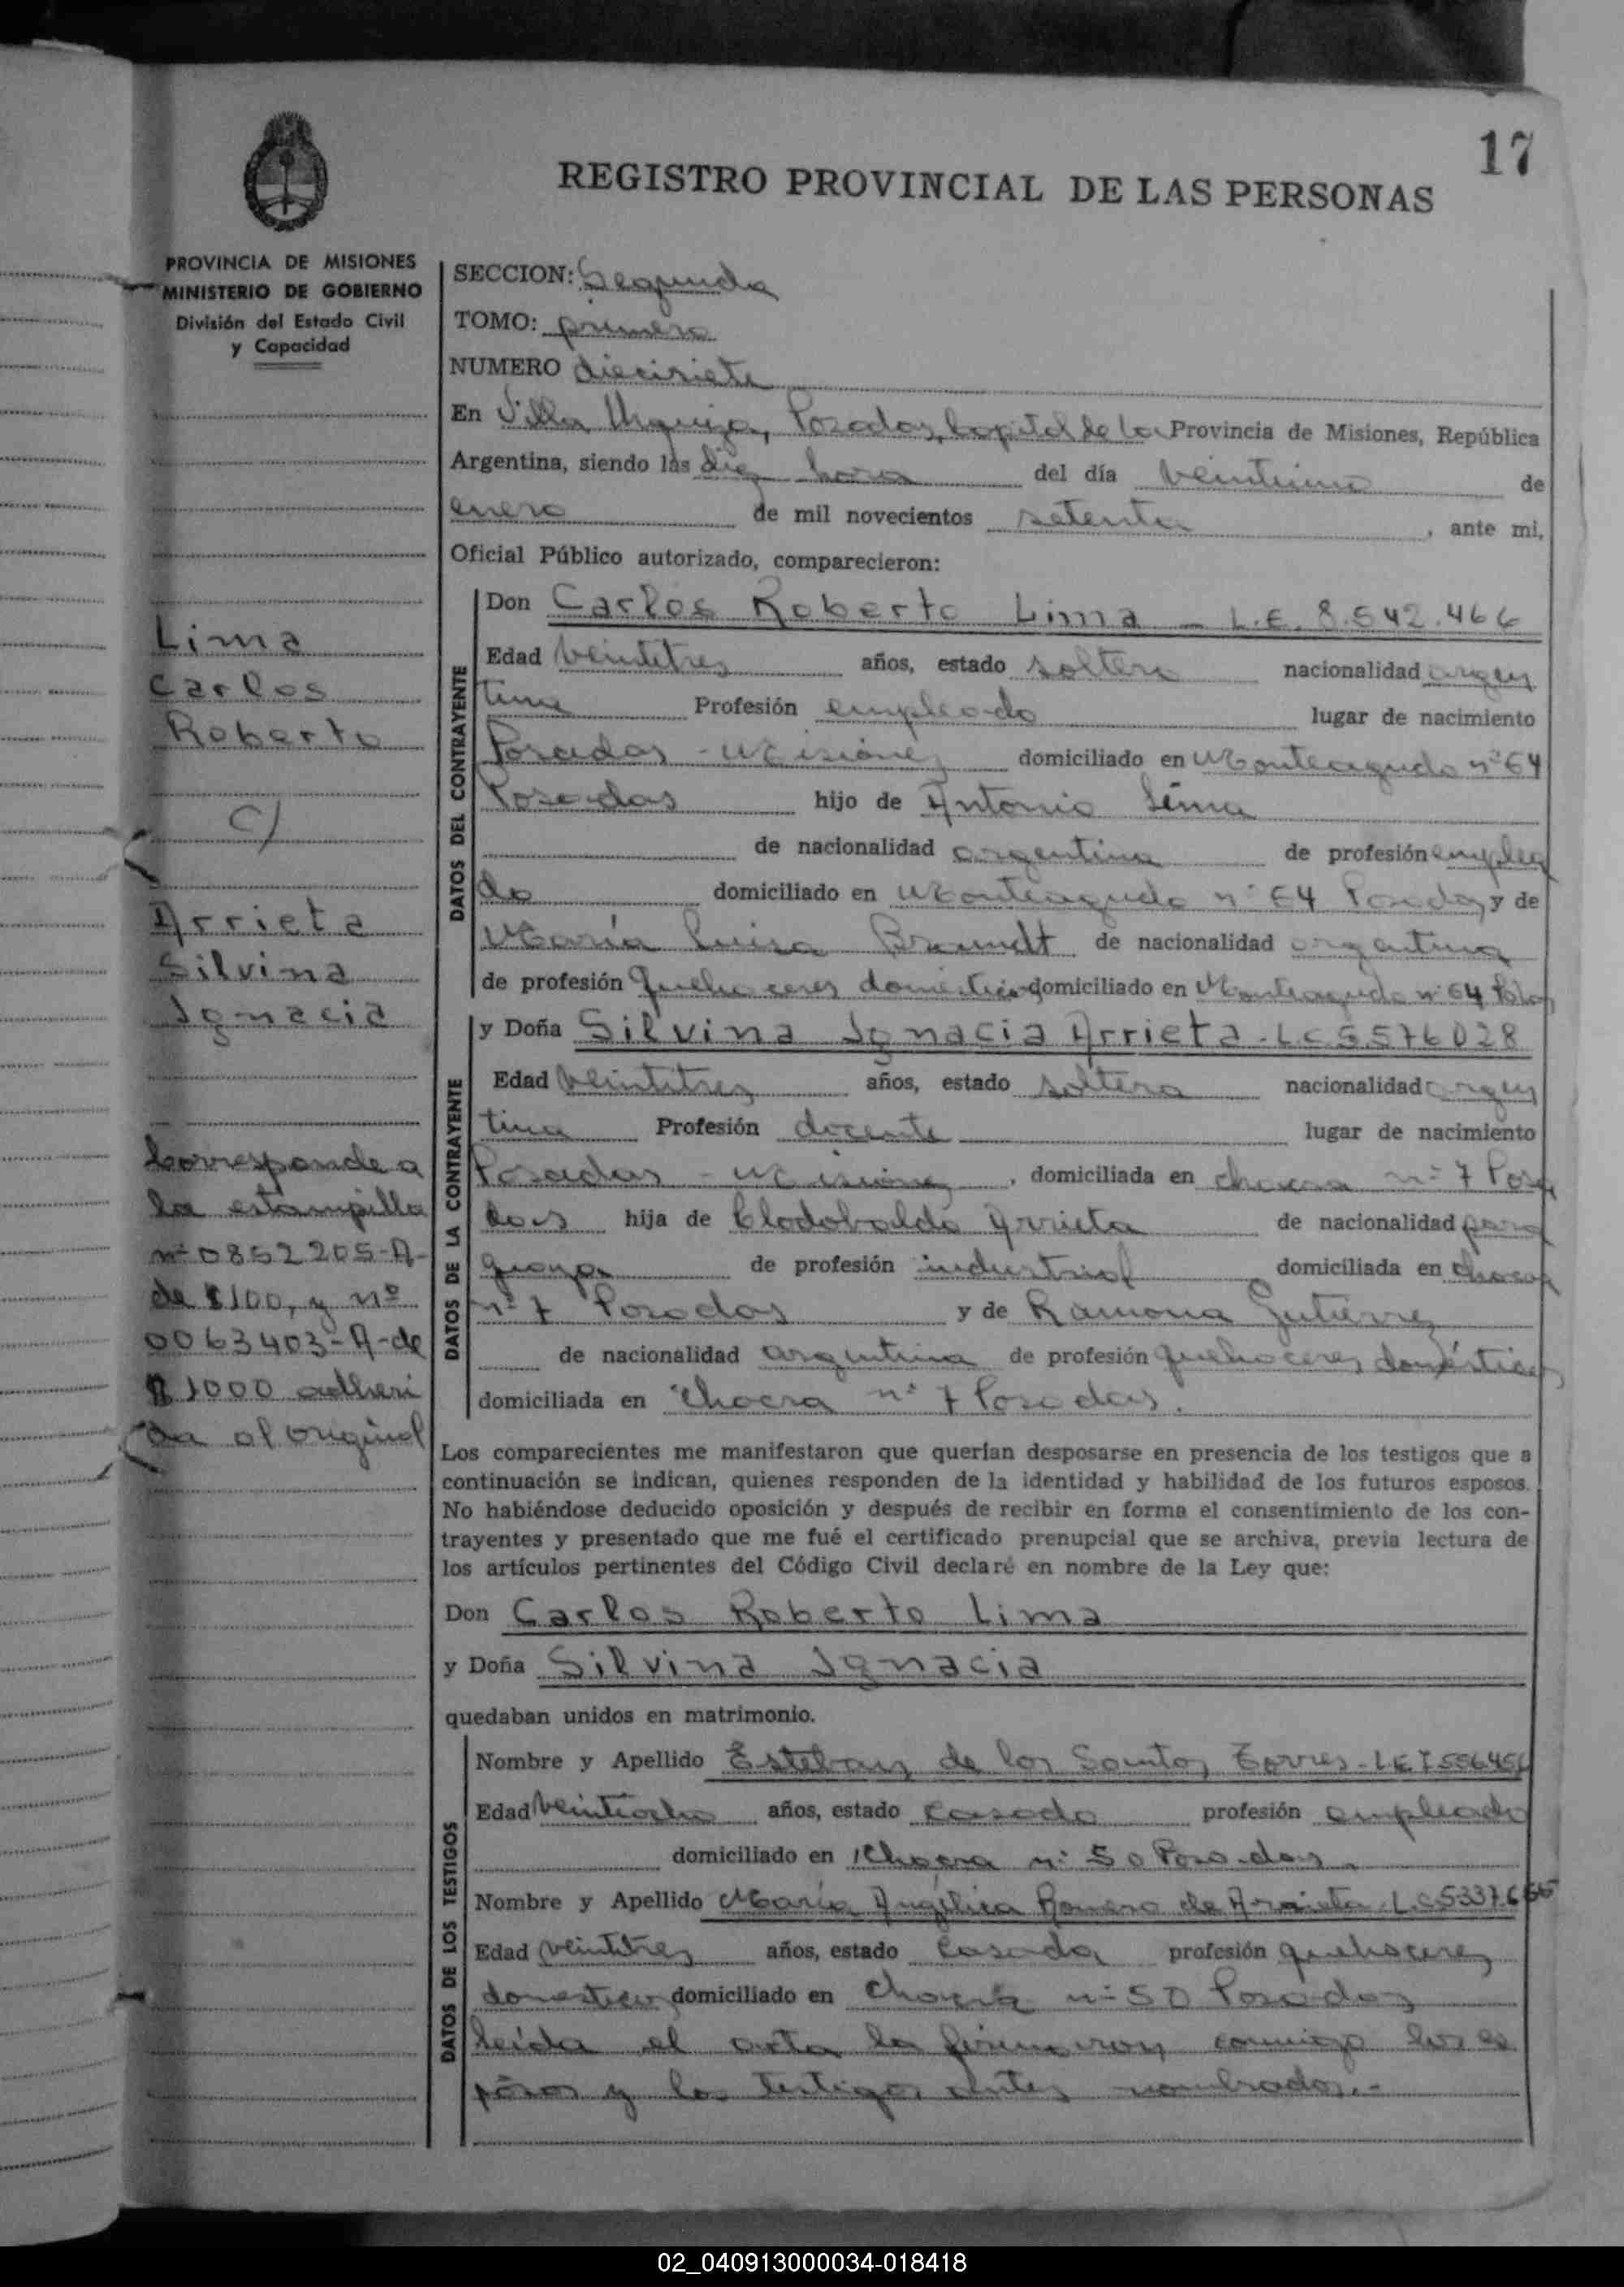 17
REGISTRO PROVINCIAL DE LAS PERSONAS
PROVINCIA DE MISIONES
MINISTERIO DE GOBIERNO
División del Estado Civil
y Capacidad
Lima
Carlos
Roberto
c/
Arrieta
Silvina
Ignacia
Corresponde a
la estampilla
nº 0852205-A-
de $ 100, y nº
0063403-A-de
$ 1000 adheri
da al original
SECCION: Segunda
TOMO: primero
NUMERO diecisiete
En Villa Urquiza, Posadas, Capital de la Provincia de Misiones, República
Argentina, siendo las diez hora del día veintiuno de
enero de mil novecientos setenta, ante mi,
Oficial Público autorizado, comparecieron:
DATOS DEL CONTRAYENTE
Don Carlos Roberto Lima - L.E. 8.542.466
Edad veintitres años, estado soltero nacionalidad argen
tina Profesión empleado lugar de nacimiento
Posadas - Misiones domiciliado en Monteagudo nº 64
Posadas hijo de Antonio Lima
de nacionalidad argentina de profesión emplea
do domiciliado en Monteagudo nº 64 Posadas y de
María Luisa Brundt de nacionalidad argentina
de profesión quehaceres domésticos domiciliado en Monteagudo nº 64
DATOS DE LA CONTRAYENTE
y Doña Silvina Ignacia Arrieta - L.C 5576028
Edad veintitres años, estado soltera nacionalidad argen
tina Profesión docente lugar de nacimiento
Posadas - Misiones, domiciliada en chacra nº 7 Posa
das hija de Clodobaldo Arrieta de nacionalidad para
guaya de profesión industrial domiciliada en chacra
nº 7 Posadas y de Ramona Gutierrez
de nacionalidad argentina de profesión quehaceres domésticos
domiciliada en Chacra nº 7 Posadas.
Los comparecientes me manifestaron que querían desposarse en presencia de los testigos que a
continuación se indican, quienes responden de la identidad y habilidad de los futuros esposos.
No habiéndose deducido oposición y después de recibir en forma el consentimiento de los con-
trayentes y presentado que me fué el certificado prenupcial que se archiva, previa lectura de
los artículos pertinentes del Código Civil declaré en nombre de la Ley que:
Don Carlos Roberto Lima
y Doña Silvina Ignacia
quedaban unidos en matrimonio.
DATOS DE LOS TESTIGOS
Nombre y Apellido Esteban de los Santos Torres - L.E
Edad veintiocho años, estado casado profesión empleado
domiciliado en Chacra nº 50 Posadas.
Nombre y Apellido María Angélica Romero de Arrieta L.C
Edad veintitres años, estado casada profesión quehaceres
domesticos domiciliado en Chacra nº 50 Posadas
Leída el acta la firmaron conmigo los es
posos y los testigos antes nombrados.-
02_040913000034-018418